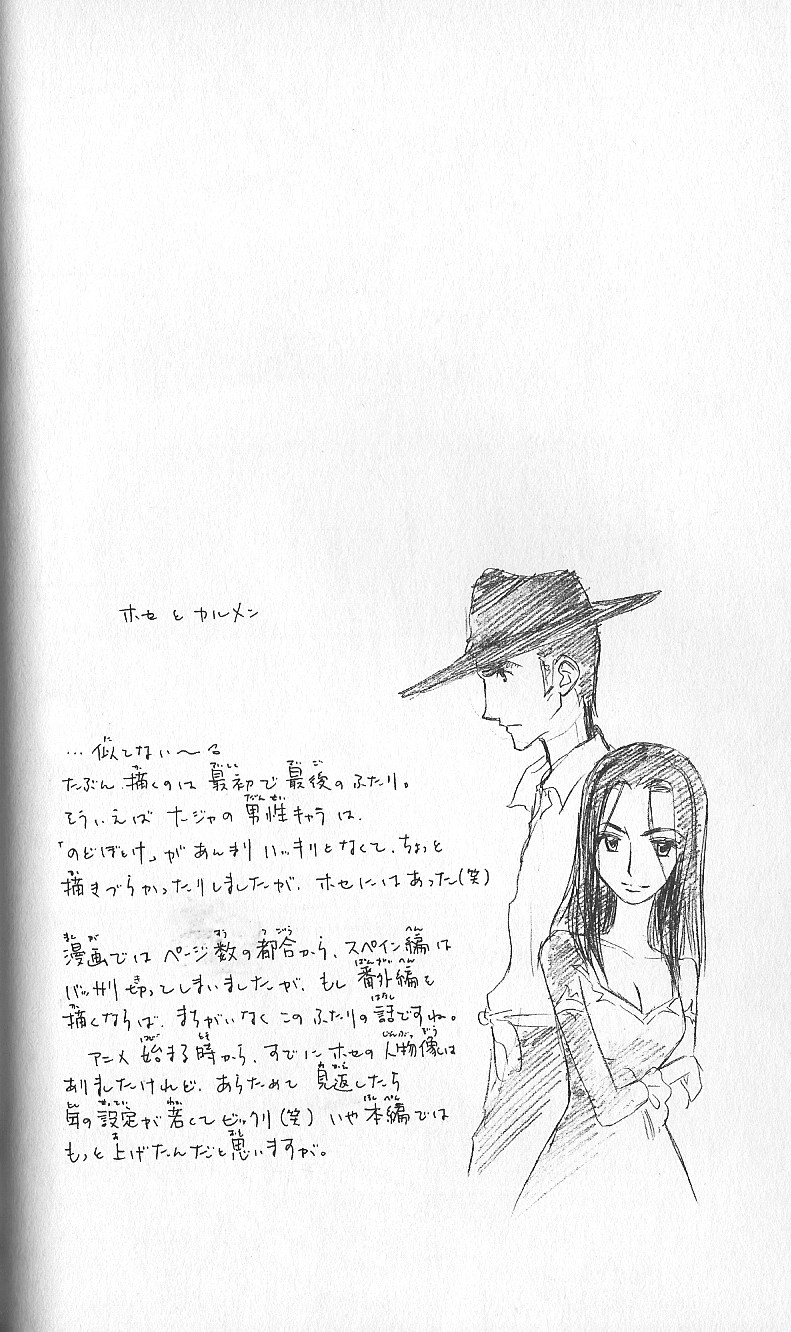 ホセとカルメン
…似てない〜る
たぶん、描くのは最初で最後のふたり。
そういえばナージャの男性キャラは、
「のどぼとけ」があんまりハッキリとなくて、ちょっと
描きづらかったりしましたが、ホセにはあった(笑)
漫画ではページ数の都合から、スペイン編は
バッサリ切ってしまいましたが、もし番外編を
描くならば、まちがいなくこのふたりの話ですね。
アニメ始まる時から、すでにホセの人物像は
ありましたけれど、あらためて見返したら
年の設定が若くてビックリ(笑)いや本編では
もっと上げたんだと思いますが。